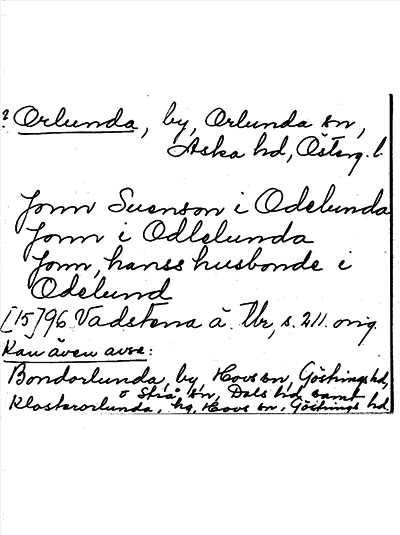 ? Orlunda, by, Orlunda sn,
Aska hd, Österg. l.
Jonn Suenson i Odelunda
Jonn i Odlelunda
Jonn, hanss husbonde i
Odelund
[15]96 Vadstena ä. Ur, s. 211. orig.
Kan även avse:
Bondorlunda, by, Hovs sn, Göstrings hd,
o Strå sn, Dals hd samt
Klosterorlunda, hg, Hovs sn, Göstrings hd.